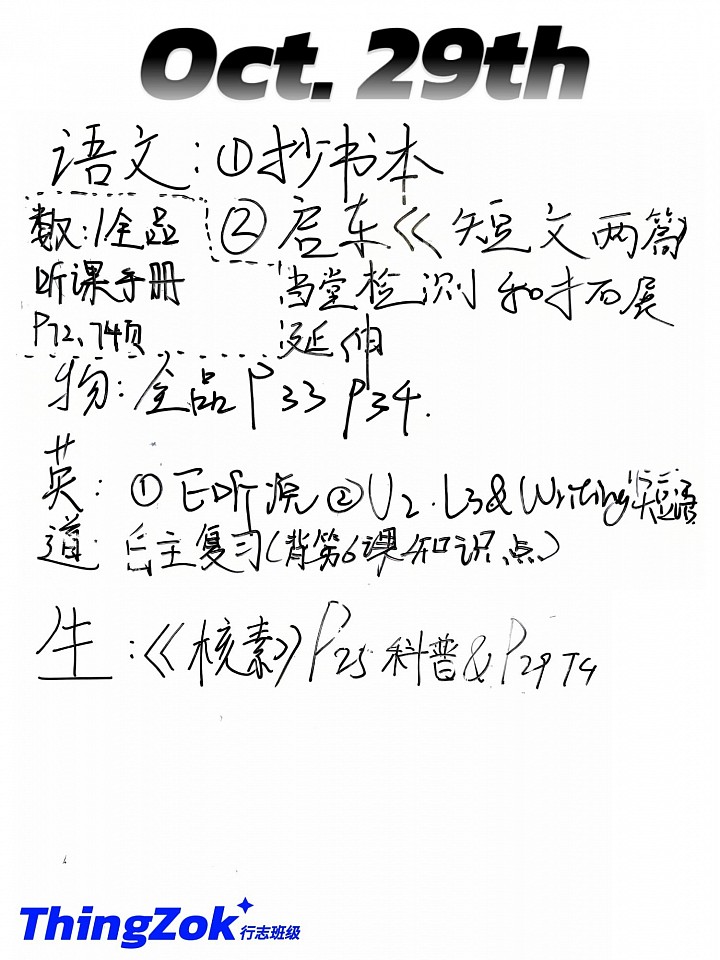 Oct. 29th
语文：①抄书本
②启东《短文两篇》
当堂检测和拓展
延伸
数：1全品
听课手册
P72、74页
物：全品P33 P34.
英：①E听说②U2.L3&Writing短语
道：自主复习(背第6课知识点)
生：《核素》P25科普&P29T4
ThingZok
行志班级